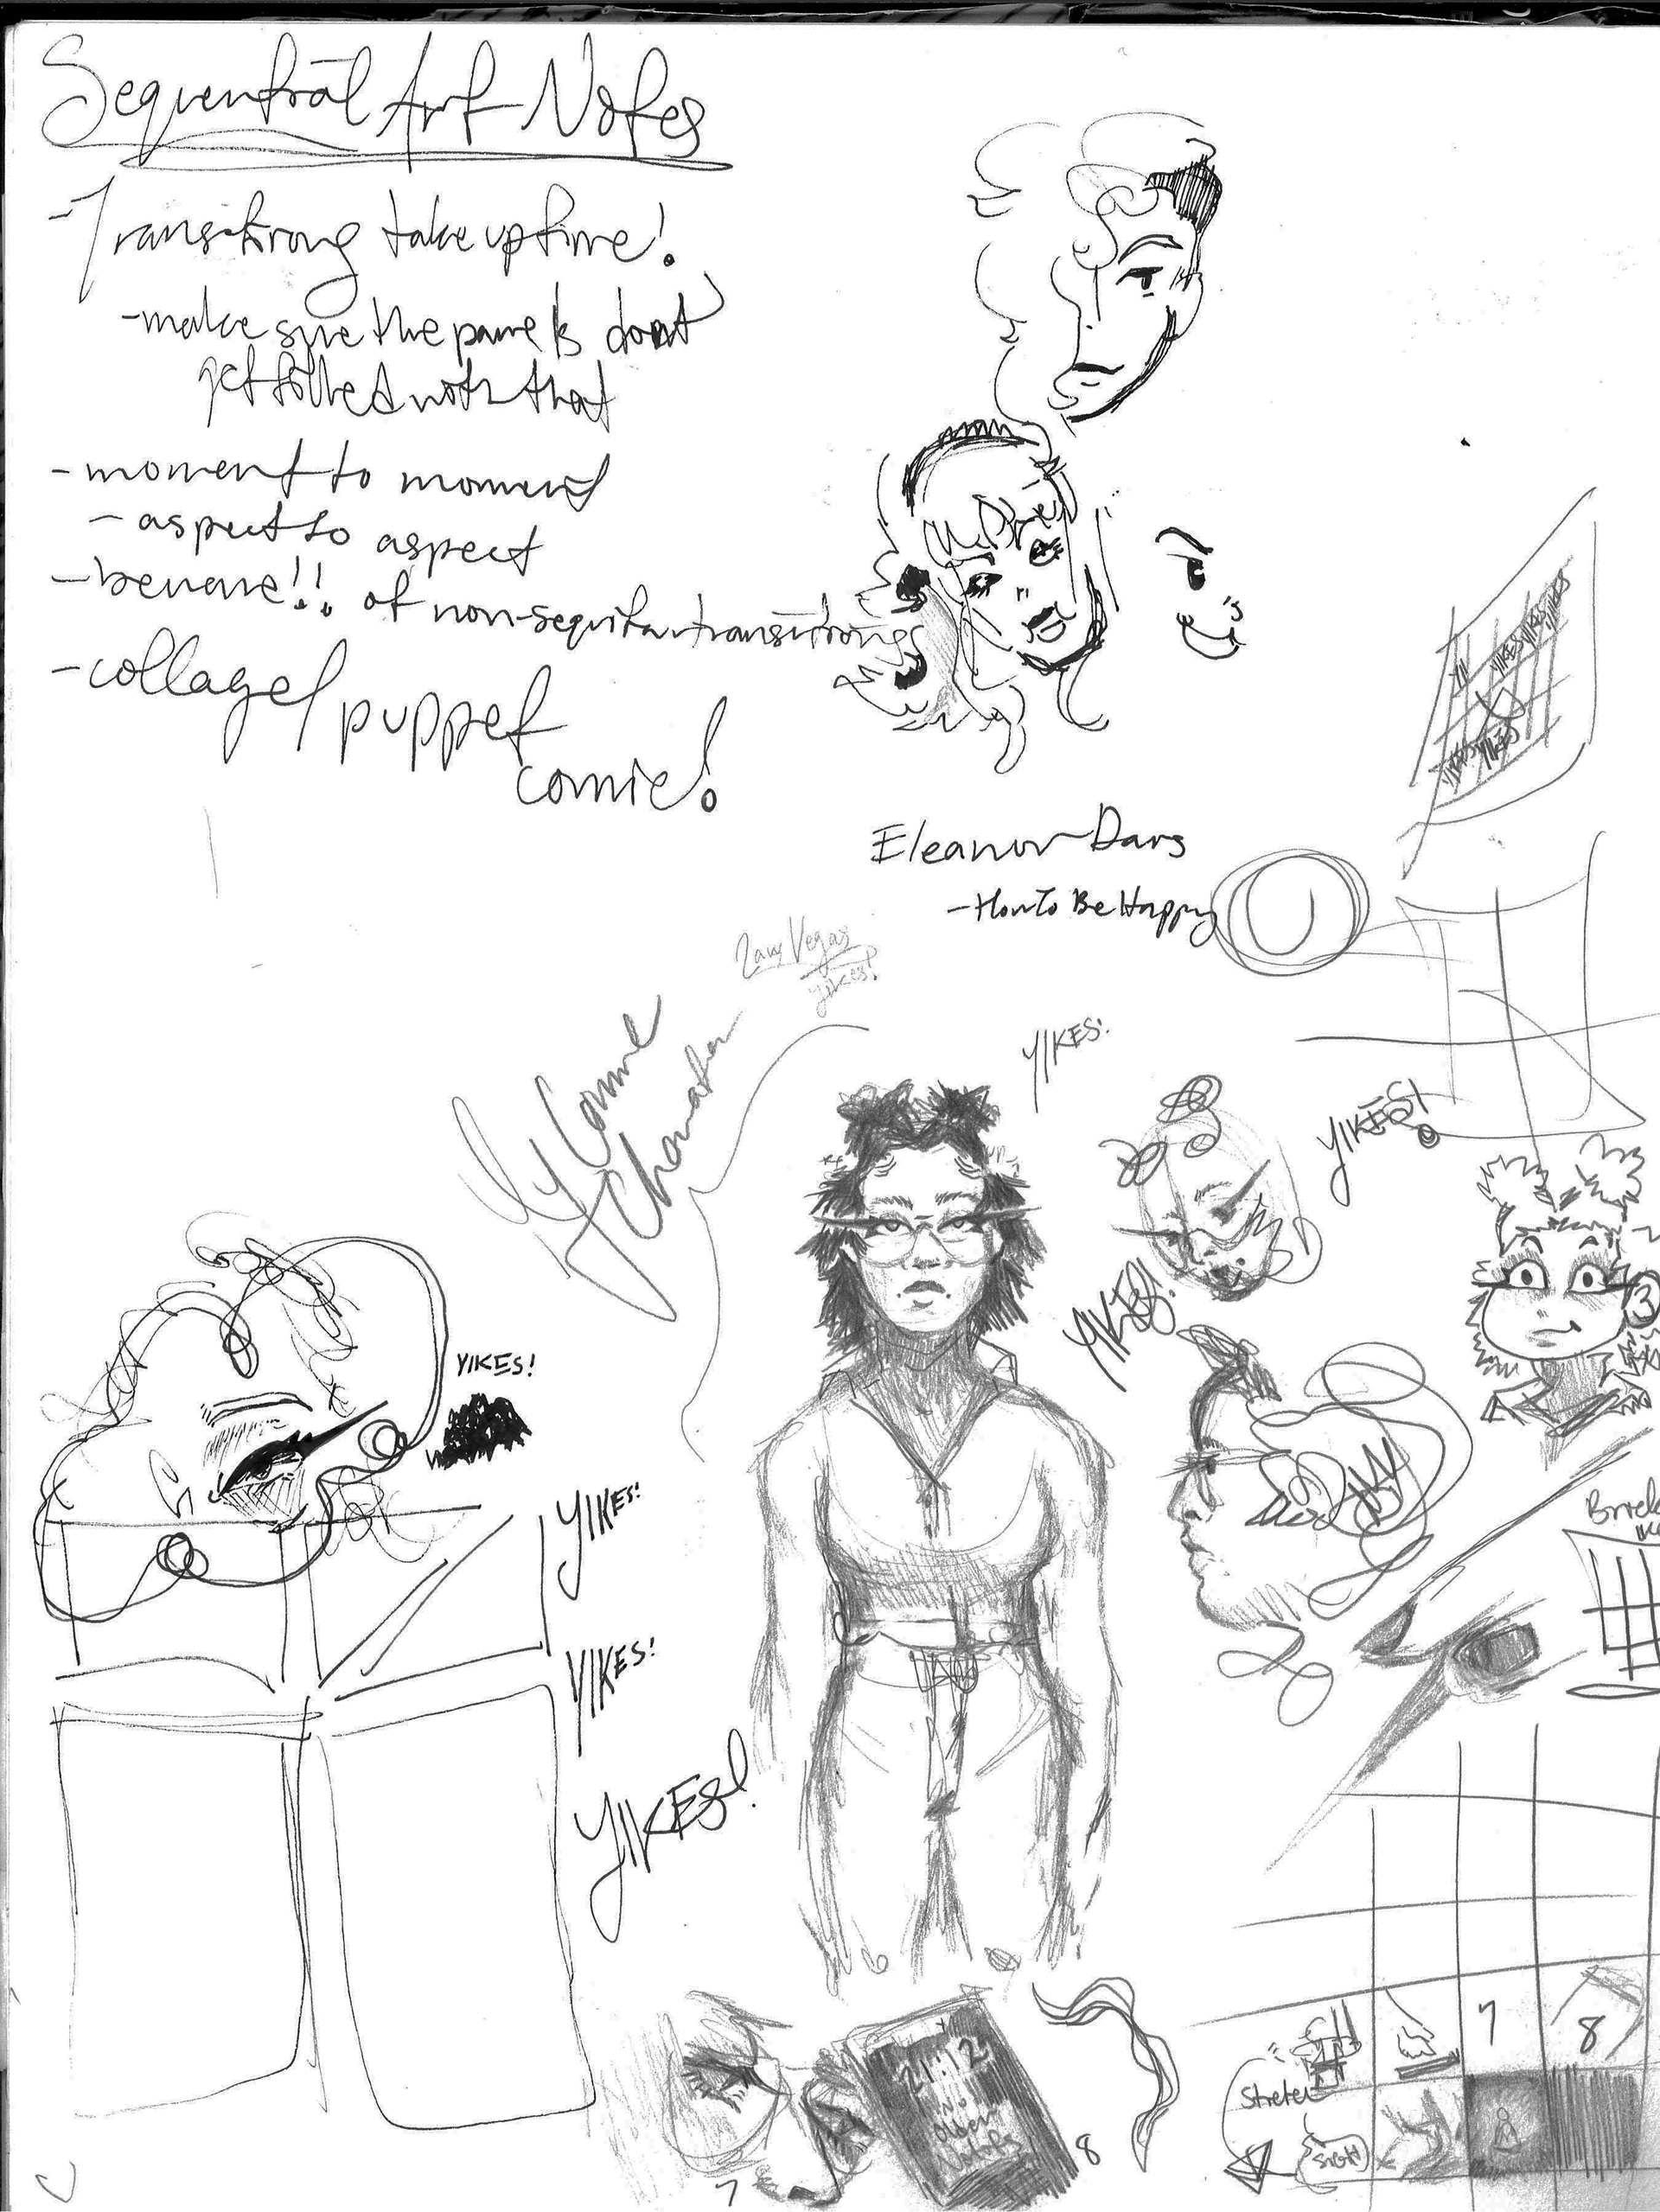 Sequential Art Notes
- Transitions take up time!
- make sure the panels dont
get filled with that
- moment to moment
- aspect to aspect
- beware!! of non-sequitar transitions
- collage/puppet
comic!
Eleanor Davis
- How To Be Happy
Vegas
yikes!
My Comic
Character
YIKES!
YIKES!
YIKES!
YIKES!
YIKES!
YIKES!
YIKES!
YIKES YIKES
YIKES YIKES
3
7
8
21:12
No
Older
Notifs
8
7